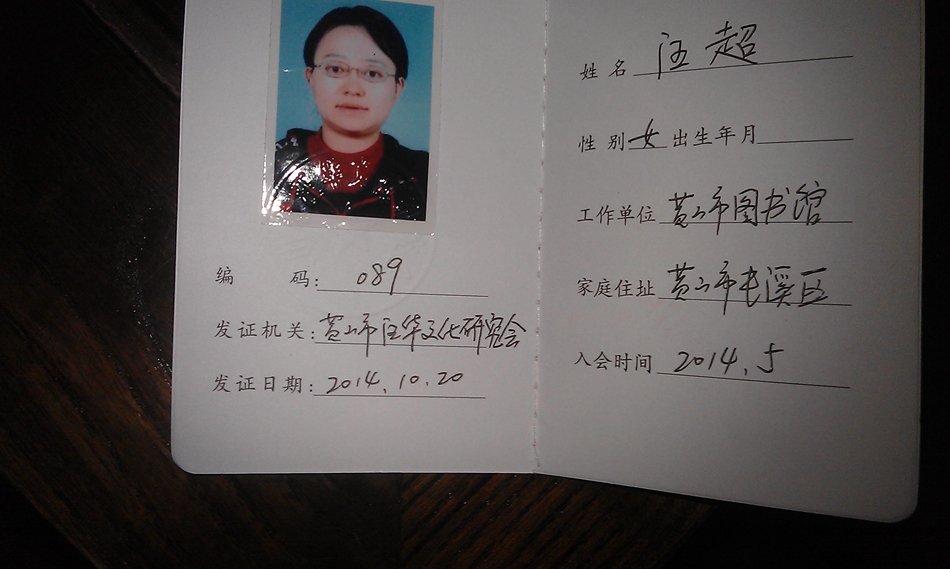 编 码: 089
发证机关: 黄山市汪华文化研究会
发证日期: 2014.10.20
姓名 汪超
性别 女 出生年月
工作单位 黄山市图书馆
家庭住址 黄山市屯溪区
入会时间 2014.5